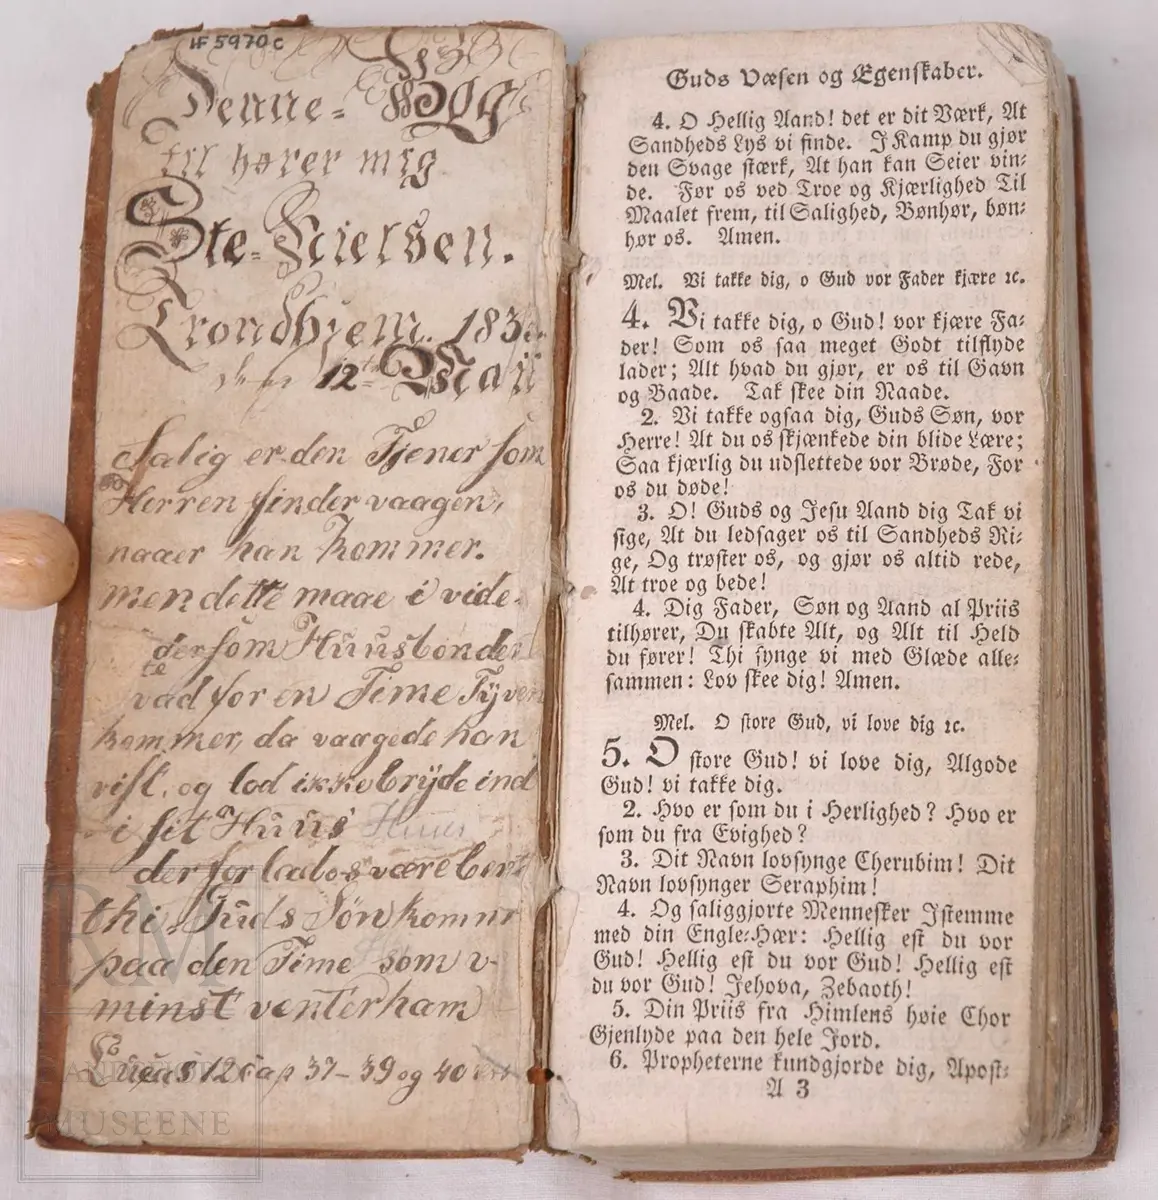 HF 5970 c
Denne= Bog
til hører mig
Ole= Nielsen.
Trondhjem. 183
den 12te Maii
Salig er den Tjener som
Herren finder vaagen,
naaer han kommer.
men dette maae i vide.
dersom Huusbonden
vad for en Time Tyven
kommer, da vaagede han
vist, og lod ikke bryde ind
i sit Huus Huus
der for lad os være bere
thi Guds Søn kommr
paa den Time som
minst venter ham
Lucas 12 Cap 37 - 39 og 40
RM
RANDSFJORD
MUSEENE
Guds Væsen og Egenskaber.
4. O Hellig Aand! det er dit Værk, At
Sandheds Lys vi finde. I Kamp du gjør
den Svage stærk, At han kan Seier vin-
de. Før os ved Troe og Kjærlighed Til
Maalet frem, til Salighed, Bønhør, bøn-
hør os. Amen.
Mel. Vi takke dig, o Gud vor Fader kjære ꝛc.
4. Vi takke dig, o Gud! vor kjære Fa-
der! Som os saa meget Godt tilflyde
lader; Alt hvad du gjør, er os til Gavn
og Baade. Tak skee din Naade.
2. Vi takke ogsaa dig, Guds Søn, vor
Herre! At du os skjænkede din blide Lære;
Saa kjærlig du udslettede vor Brøde, For
os du døde!
3. O! Guds og Jesu Aand dig Tak vi
sige, At du ledsager os til Sandheds Ri-
ge, Og trøster os, og gjør os altid rede,
At troe og bede!
4. Dig Fader, Søn og Aand al Priis
tilhører, Du skabte Alt, og Alt til Held
du fører! Thi synge vi med Glæde alle-
sammen: Lov skee dig! Amen.
Mel. O store Gud, vi love dig ꝛc.
5. O store Gud! vi love dig, Algode
Gud! vi takke dig.
2. Hvo er som du i Herlighed? Hvo er
som du fra Evighed?
3. Dit Navn lovsynge Cherubim! Dit
Navn lovsynger Seraphim!
4. Og saliggjorte Mennesker Istemme
med din Engle-Hær: Hellig est du vor
Gud! Hellig est du vor Gud! Hellig est
du vor Gud! Jehova, Zebaoth!
5. Din Priis fra Himlens høie Chor
Gjenlyde paa den hele Jord.
6. Propheterne kundgjorde dig, Apost-
A 3